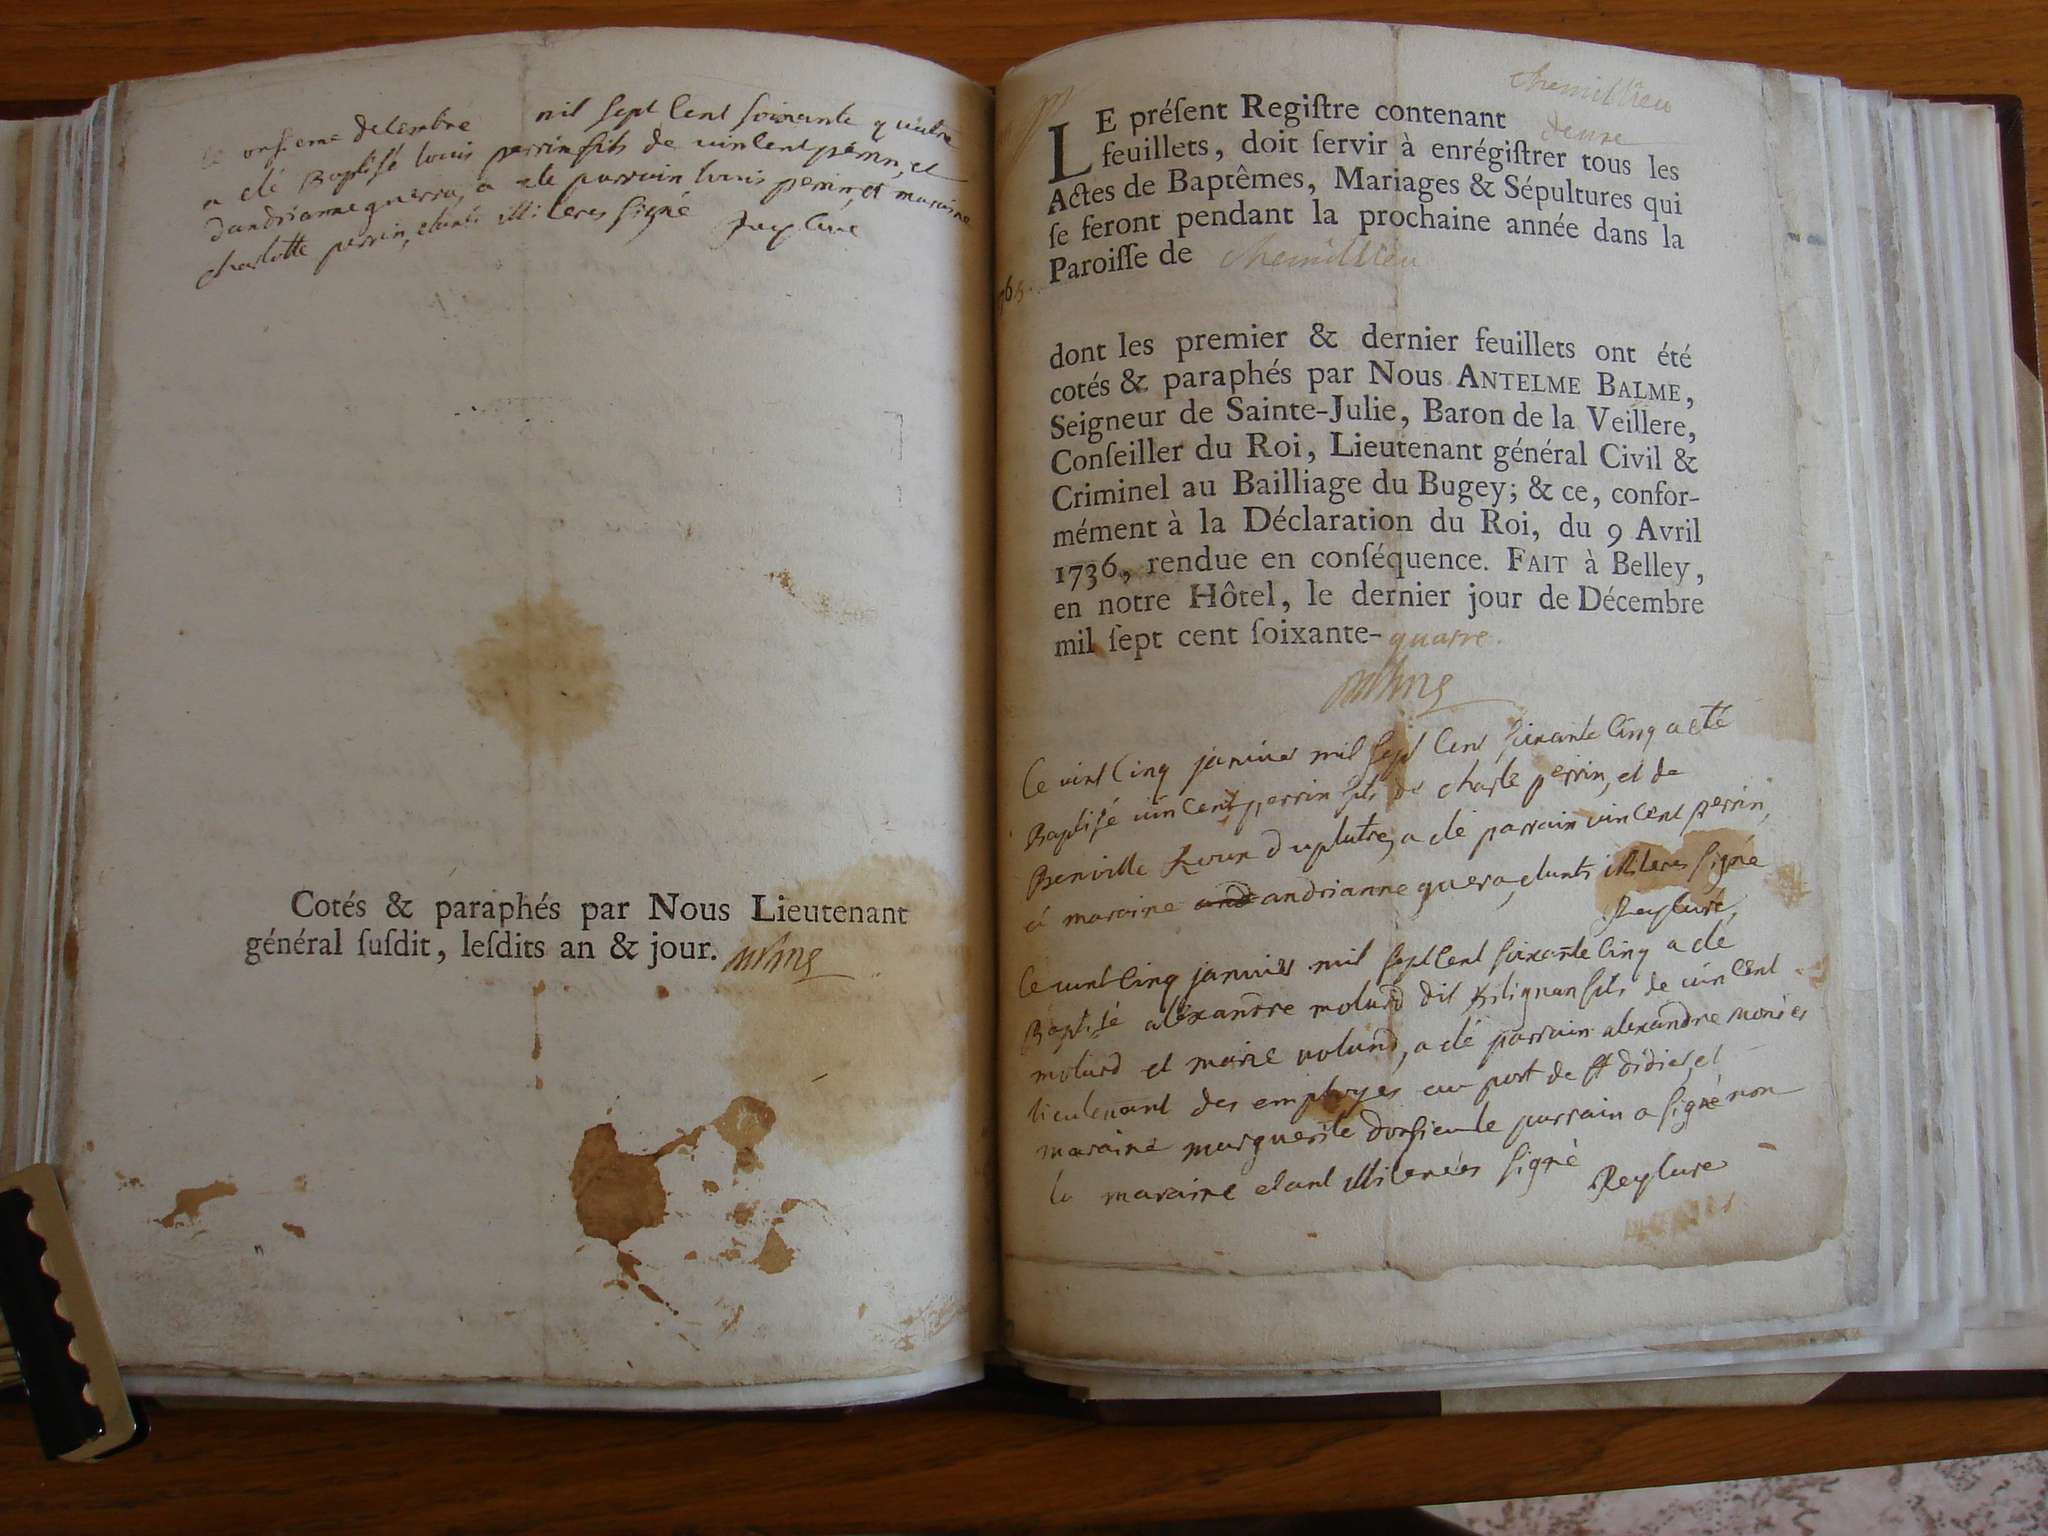 le onsieme decembre mil sept cent soixante quatre
a eté Baptisé louis perrin fils de vincent perrin, et
dandrianne guerra, a eté parrain louis perrin, et maraine
charlotte perrin, etants illiteres signé Rey curé
Cotés & paraphés par Nous Lieutenant
général ſuſdit, leſdits an & jour.
chemillieu
LE préſent Regiſtre contenant deux
feuillets, doit ſervir à enrégiſtrer tous les
Actes de Baptêmes, Mariages & Sépultures qui
ſe feront pendant la prochaine année dans la
Paroiſſe de chemillieu
dont les premier & dernier feuillets ont été
cotés & paraphés par Nous ANTELME BALME,
Seigneur de Sainte-Julie, Baron de la Veillere,
Conſeiller du Roi, Lieutenant général Civil &
Criminel au Bailliage du Bugey; & ce, confor-
mément à la Déclaration du Roi, du 9 Avril
1736, rendue en conſéquence. FAIT à Belley,
en notre Hôtel, le dernier jour de Décembre
mil ſept cent ſoixante-quatre.
le vint cinq janvier mil sept cent soixante cinq a eté
Baptisé vincent perrin fils de charle perrin, et de
Benville duplutre, a eté parrain vincent perrin,
et maraine andrianne guera, etants illiteres signé
Rey curé,
le vint cinq janvier mil sept cent soixante cinq a eté
Baptisé alexandre molard dit fils de vincent
molard et marie volund, a eté parrain alexandre monier
lieutenant des employes au port de st didier, et
maraine marguerite le parrain a signé non
la maraine etant illiterées signé Rey cure